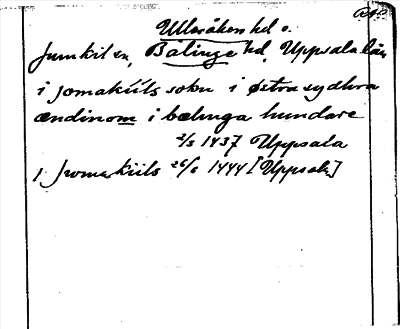 Ulleråkers hd o.
Jumkil sn, Bälinge hd, Uppsala län
i jomakiils sokn i østra sydhra
ændinom i bælinga hundare
2/3 1437 Uppsala
J Jomakiils 26/6 1444 [Uppsala]